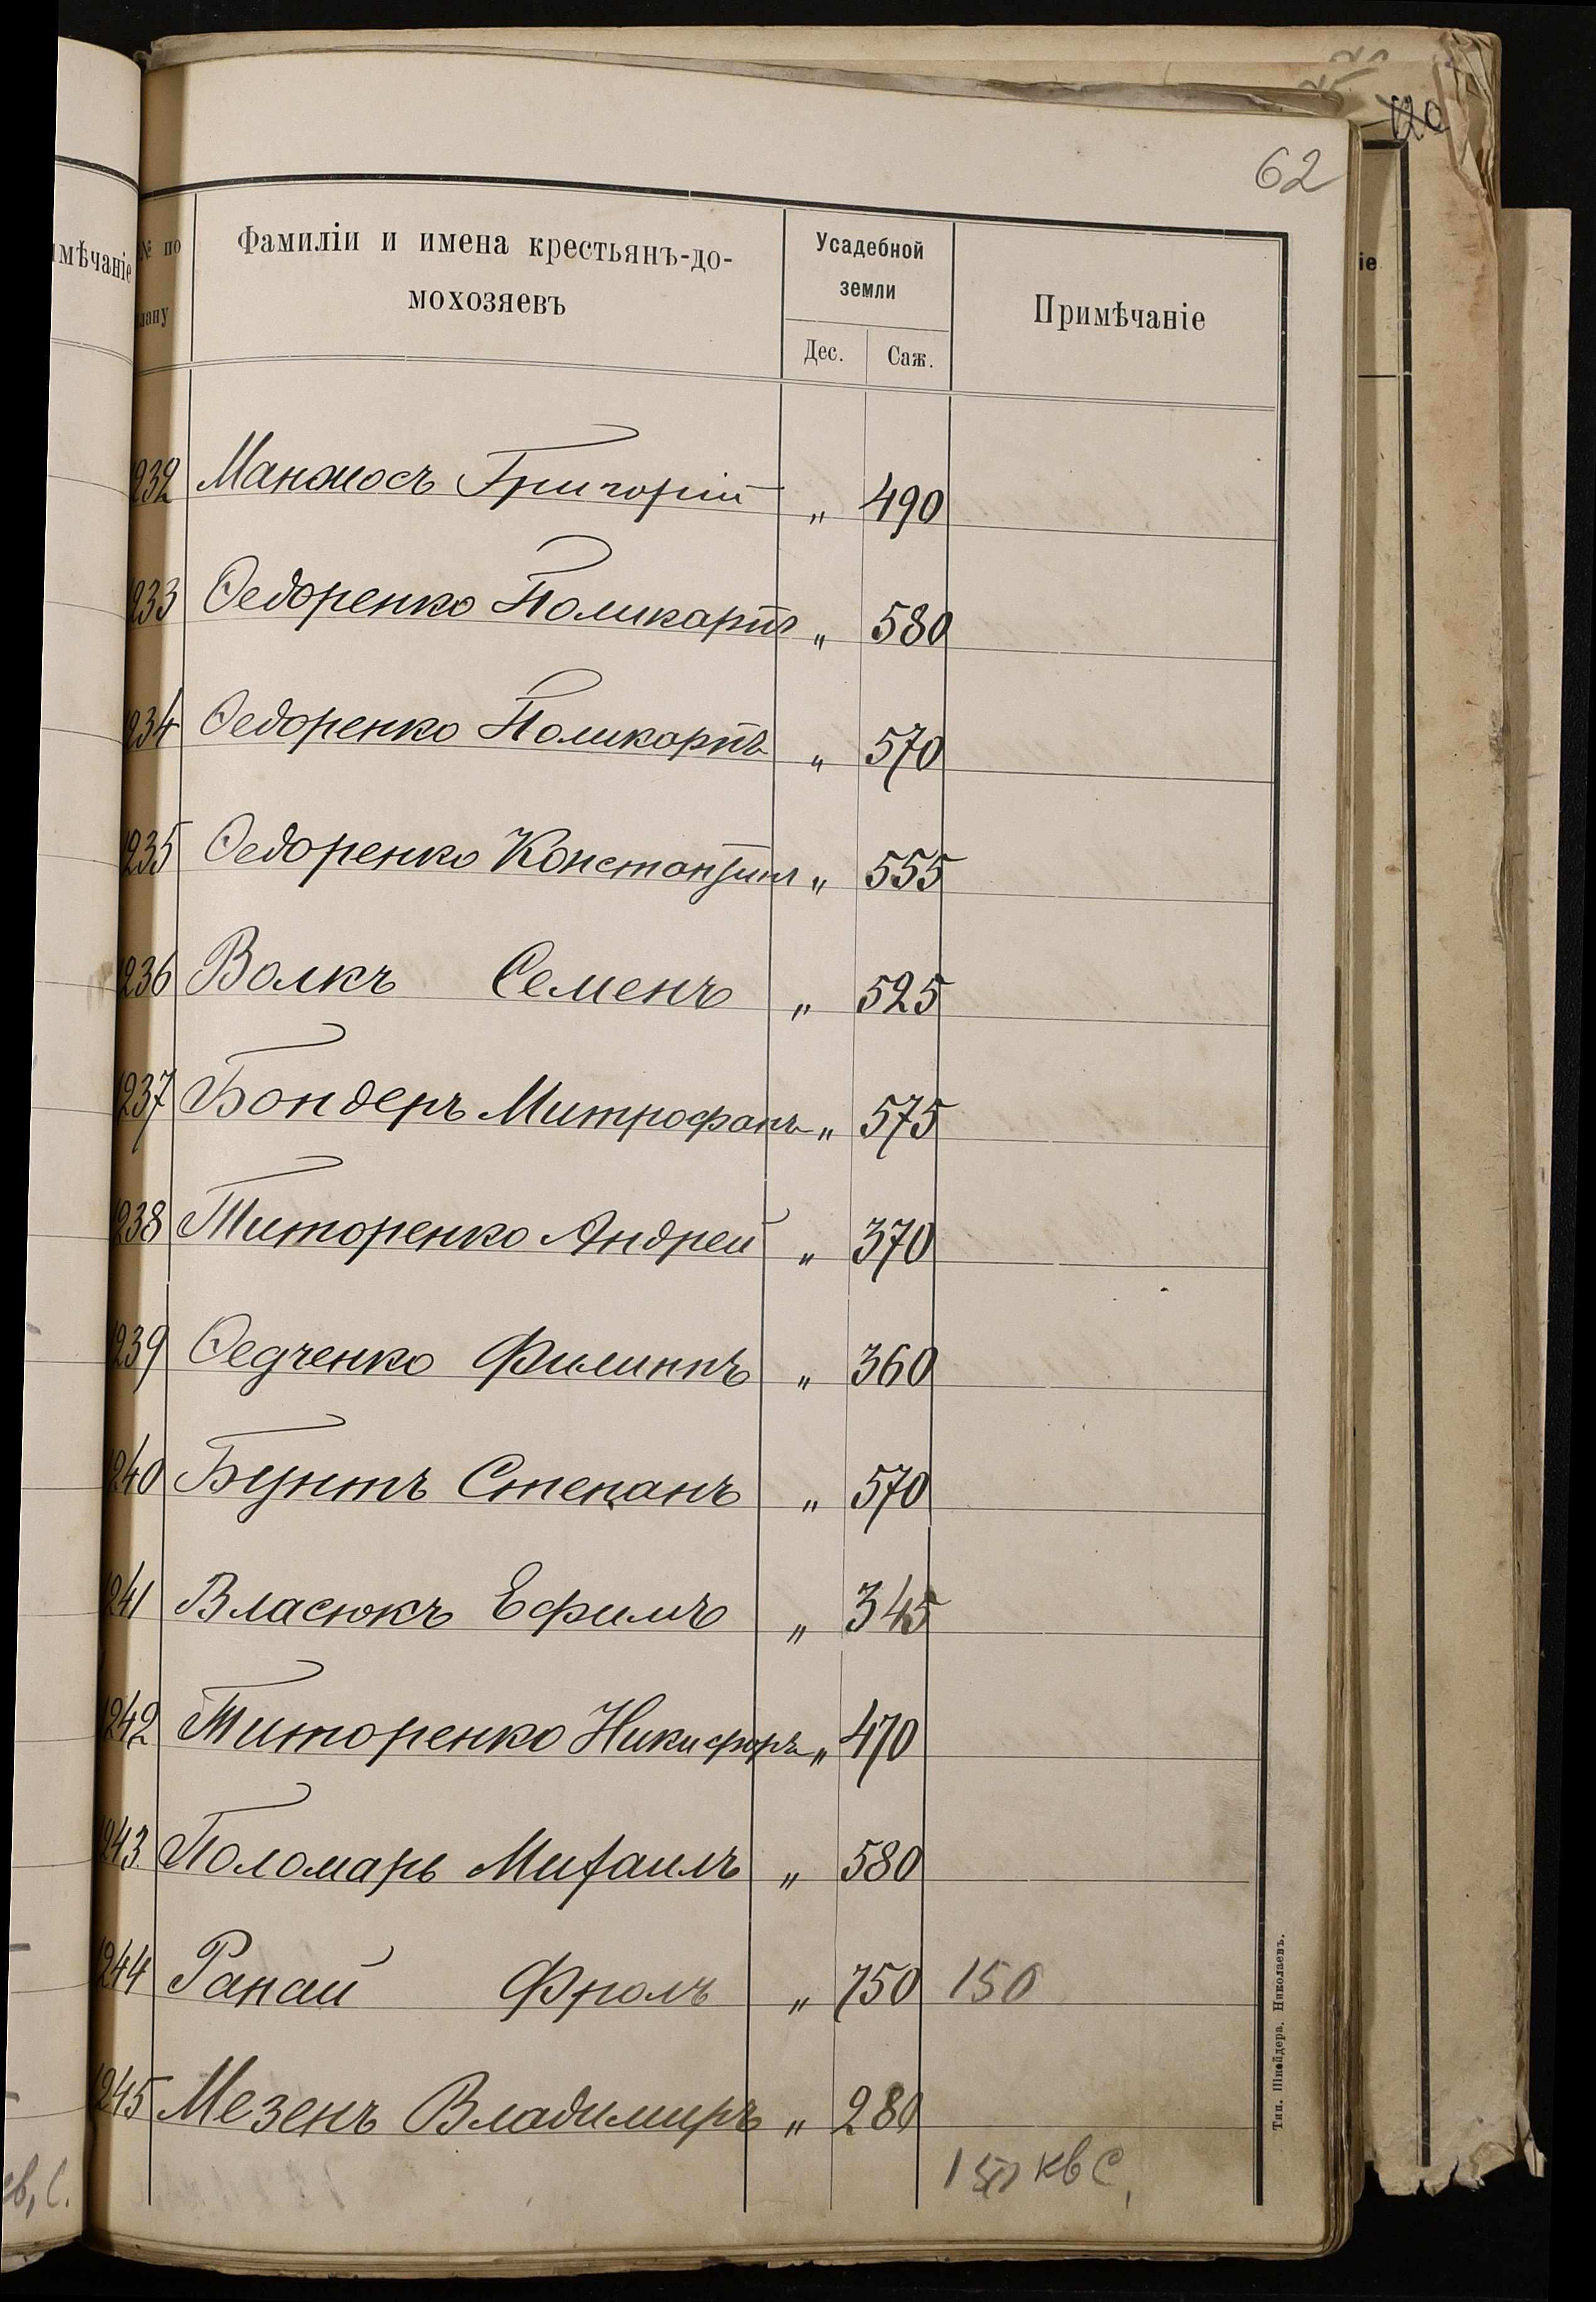 62
мѣчаніе
№ по
плану
Фамиліи и имена крестьянъ-до-
мохозяевъ
Усадебной
земли
Дес. Саж.
Примѣчаніе
1232 Манжосъ Григорій „ 490
1233 Ѳедоренко Поликарпъ „ 580
1234 Ѳедоренко Поликарпъ „ 570
1235 Ѳедоренко Константинъ „ 555
1236 Волкъ Семенъ „ 525
1237 Бондеръ Митрофанъ „ 575
1238 Титоренко Андрей „ 370
1239 Ѳедченко Филиппъ „ 360
1240 Бунтъ Степанъ „ 570
1241 Власюкъ Ефимъ „ 345
1242 Титоренко Никифоръ „ 470
1243 Поломарь Михаилъ „ 580
1244 Рапай Фролъ „ 750 150
1245 Мезенъ Владимиръ „ 280
150 кв с,
Тип. Шнейдера. Николаевъ.